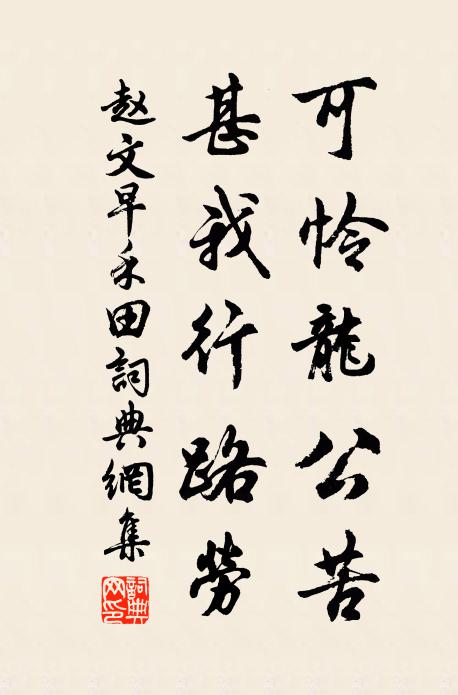 可怜龍公苦
甚我行路勞
赵文早禾田詞典網集
詞典网印